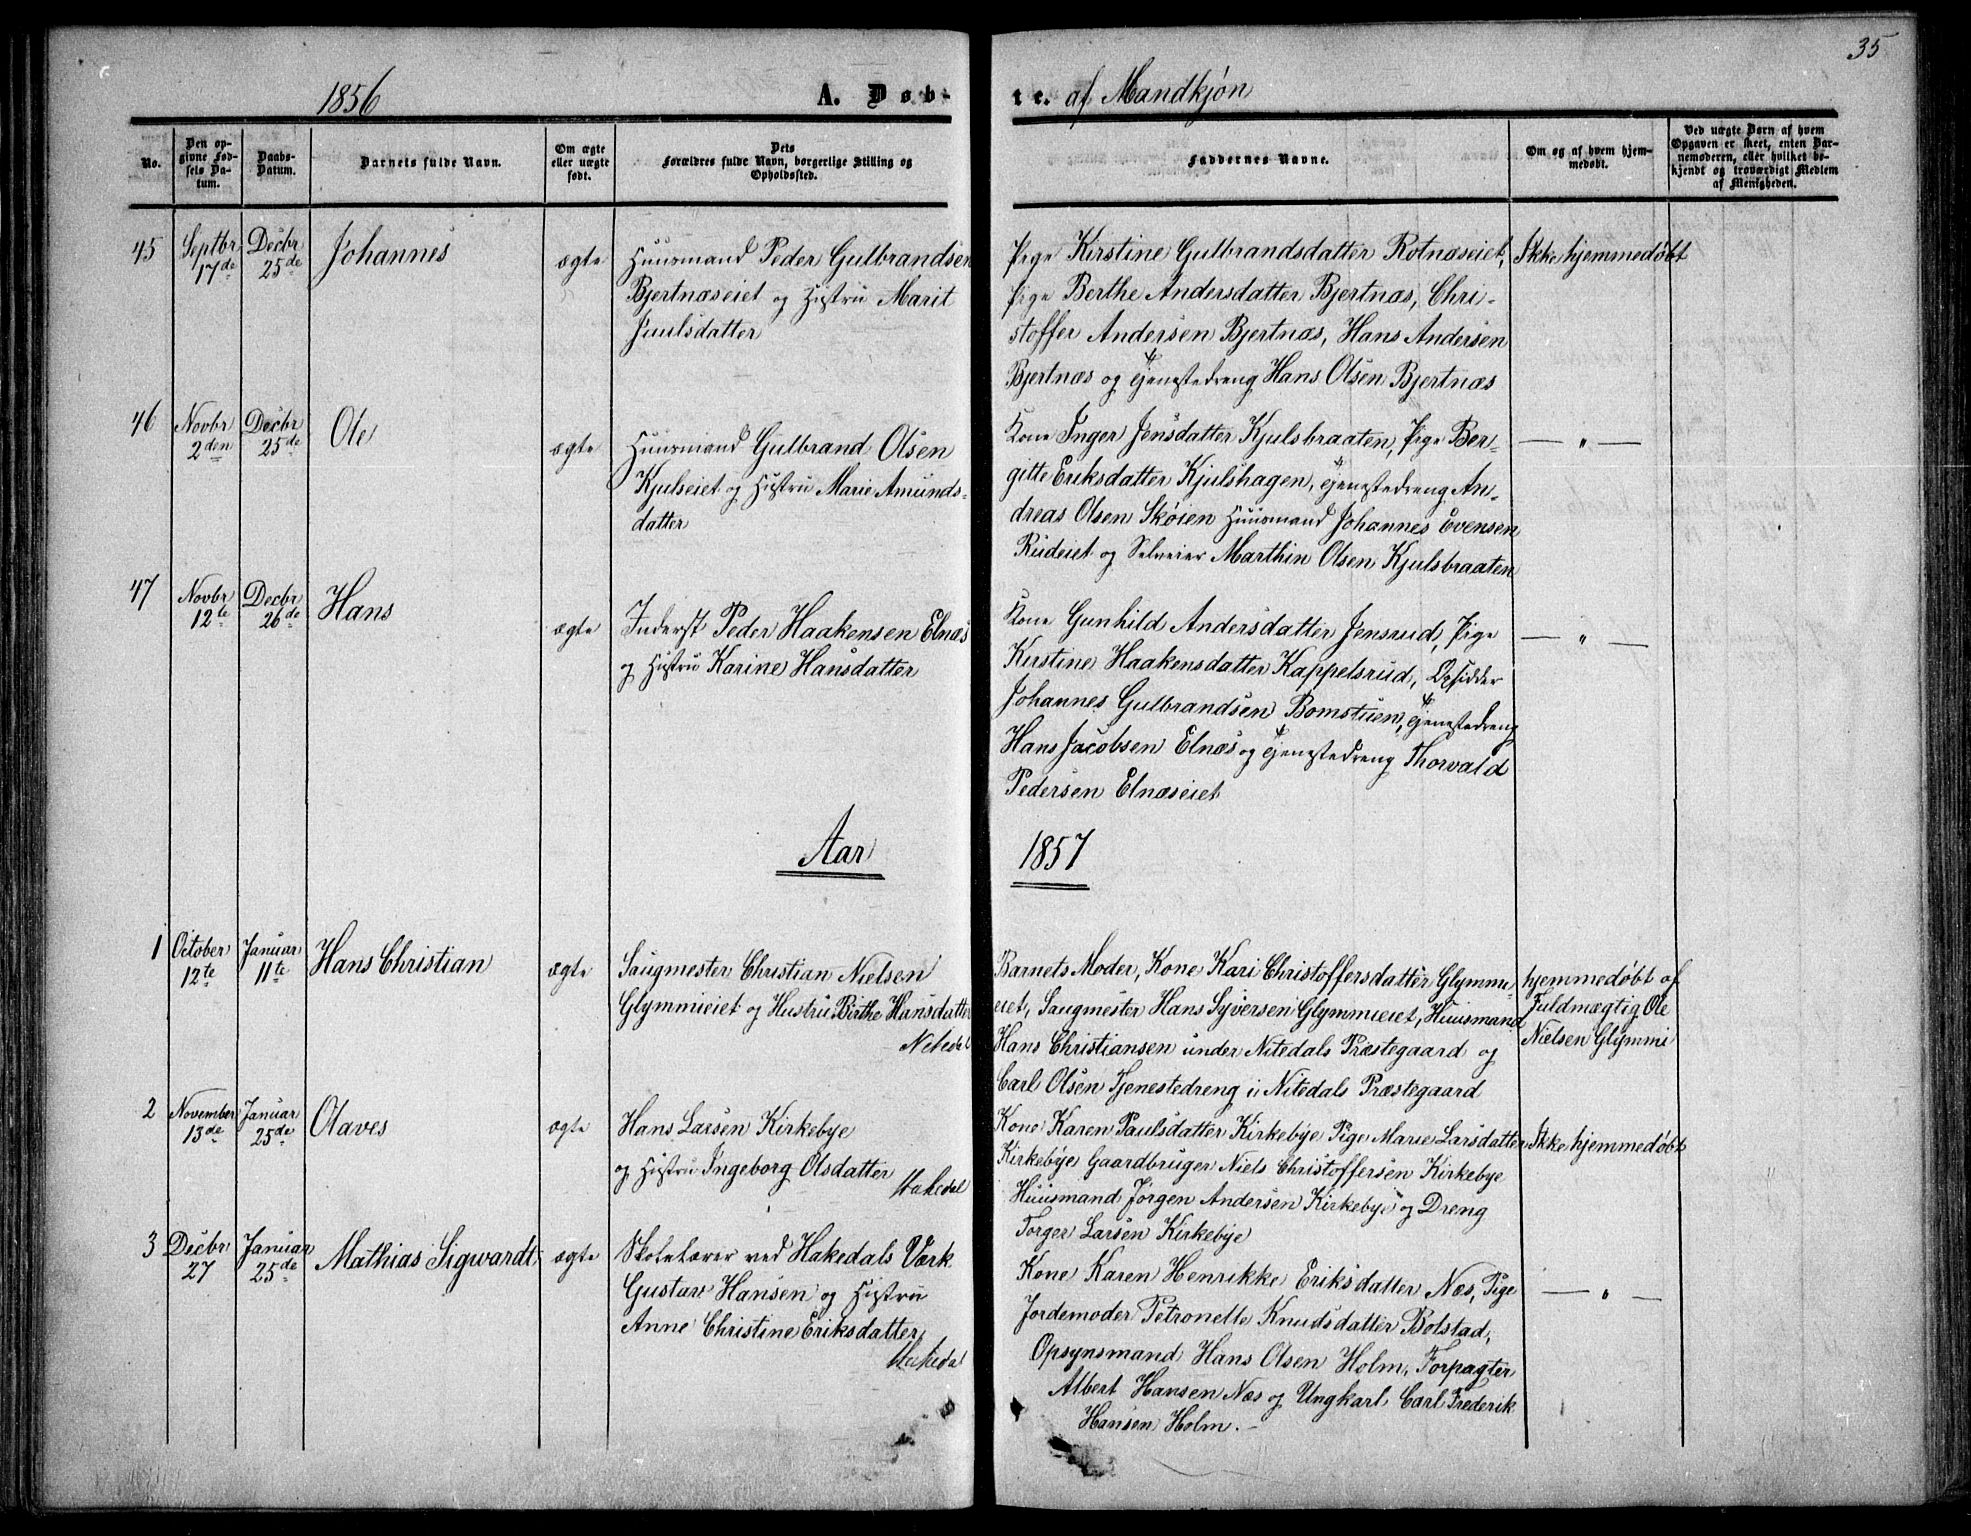 35
1856
A. Døb-
te. af Mandkjøn
No.
Den op-
givne Fød-
sels Da-
tum.
Daabs-
Datum.
Barnets fulde Navn.
Om ægte
eller uægte
født.
Dets
Forældres fulde Navn, borgerlige Stilling og
Opholdssted.
Faddernes Navne.
Om og af hvem hjem-
medøbt.
Ved uægte Børn af hvem
Opgaven er skeet, enten Bar-
nemoderen, eller hvilket be-
kjendt og troværdigt Medlem
af Menigheden.
45
Septbr
17de
Decbr
25de
Johannes
ægte
Huusmand Peder Gulbrandsen
Bjertnæseiet og Hustru Marit
Paulsdatter
Pige Kirstine Gulbrandsdatter Rotnæseiet,
Pige Berthe Andersdatter Bjertnæs, Chri-
stoffer Andersen Bjertnæs, Hans Andersen
Bjertnæs og Tjenestedreng Hans Olsen Bjertnæs
Ikke hjemmedøbt
46
Novbr
2den
Decbr
25de
Ole
ægte
Huusmand Gulbrand Olsen
Kjulseiet og Hustru Marie Amunds-
datter
Kone Inger Jensdatter Kjulsbraaten, Pige Ber-
gitte Eriksdatter Kjulshagen, Tjenestedreng An-
dreas Olsen Skøien Huusmand Johannes Evensen
Rudeiet og Selveier Marthin Olsen Kjulsbraaten
— " —
47
Novbr
12te
Decbr
26de
Hans
ægte
Inderst Peder Haakensen Elnæs
og Hustru Karine Hansdatter
Kone Gunhild Andersdatter Jensrud, Pige
Kirstine Haakensdatter Kappelsrud, Opsidder
Johannes Gulbrandsen Bomstuen, Tjenestedreng
Hans Jacobsen Elnæs og Tjenestedreng Thorvald
Pedersen Elnæseiet
— " —
Aar
1857
1
October
12te
Januar
11te
Hans Christian
ægte
Saugmester Christian Nielsen
Glymmieiet og Hustru Birthe Hansdatter
Nitedal
Barnets Moder, Kone Kari Christoffersdatter Glymmi-
eiet, Saugmester Hans Syversen Glymmieiet, Huusmand
Hans Christiansen under Nitedals Præstegaard og
Carl Olsen Tjenestedreng i Nitedals Præstegaard
hjemmedøbt af
Fuldmægtig Ole
Nielsen Glymmi
2
November
13de
Januar
25de
Olaves
ægte
Hans Larsen Kirkebye
og Hustru Ingeborg Olsdatter
Hakedal
Kone Karen Paulsdatter Kirkebye Pige Marie Larsdatter
Kirkebye Gaardbruger Niels Christoffersen Kirkebye
Huusmand Jørgen Andersen Kirkebye og Dreng
Torger Larsen Kirkebye
Ikke hjemmedøbt
3
Decbr
27
Januar
25de
Mathias Sigwardt
ægte
Skolelærer ved Hakedals Værk
Gustav Hansen og Hustru
Anne Christine Eriksdatter
Hakedal
Kone Karen Henrikke Eriksdatter Næs, Pige
Jordemoder Petronelle Knudsdatter Bolstad,
Opsynsmand Hans Olsen Holm, Forpagter
Albert Hansen Næs og Ungkarl Carl Frederik
Hansen Holm.
— " —